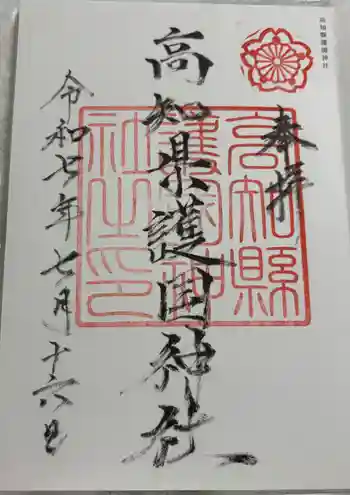 高知縣護國神社
奉拝
高知縣護國神社之印
高知県護国神社
令和七年七月十六日